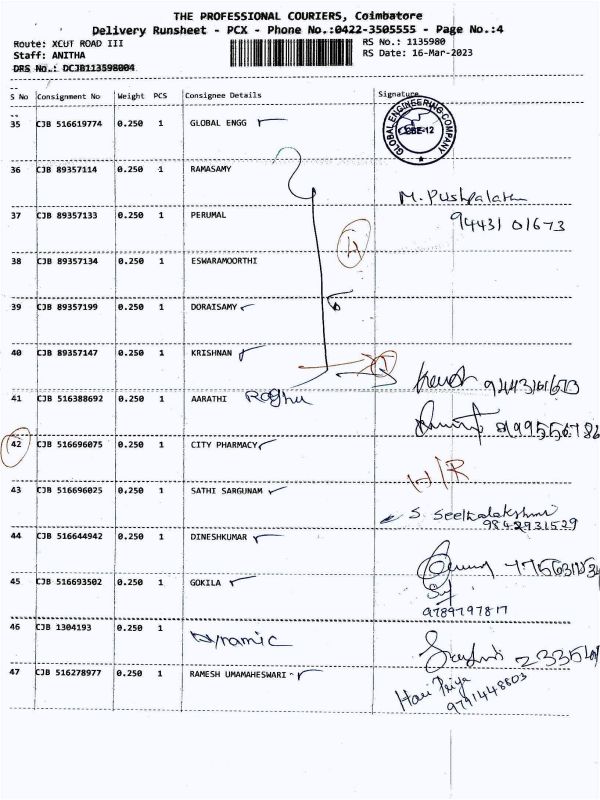 THE PROFESSIONAL COURIERS, Coimbatore
Delivery Runsheet - PCX - Phone No.:0422-3505555 - Page No.:4
Route: XCUT ROAD III RS No.: 1135980
Staff: ANITHA RS Date: 16-Mar-2023
DRS No.: DCJB113598004
S No Consignment No Weight PCS Consignee Details Signature
35 CJB 516619774 0.250 1 GLOBAL ENGG
GLOBAL ENGINEERING COMPANY
CBE-12
36 CJB 89357114 0.250 1 RAMASAMY
M. Pushpalatha
37 CJB 89357133 0.250 1 PERUMAL 94431 01673
38 CJB 89357134 0.250 1 ESWARAMOORTHI
39 CJB 89357199 0.250 1 DORAISAMY
40 CJB 89357147 0.250 1 KRISHNAN
9443101673
41 CJB 516388692 0.250 1 AARATHI Raghu
42 CJB 516696075 0.250 1 CITY PHARMACY
H/R
43 CJB 516696025 0.250 1 SATHI SARGUNAM
S. Seethalakshmi
9842931529
44 CJB 516644942 0.250 1 DINESHKUMAR
45 CJB 516693502 0.250 1 GOKILA
9789797817
46 CJB 1304193 0.250 1 Dynamic
47 CJB 516278977 0.250 1 RAMESH UMAMAHESWARI
Hari Priya
9791448803